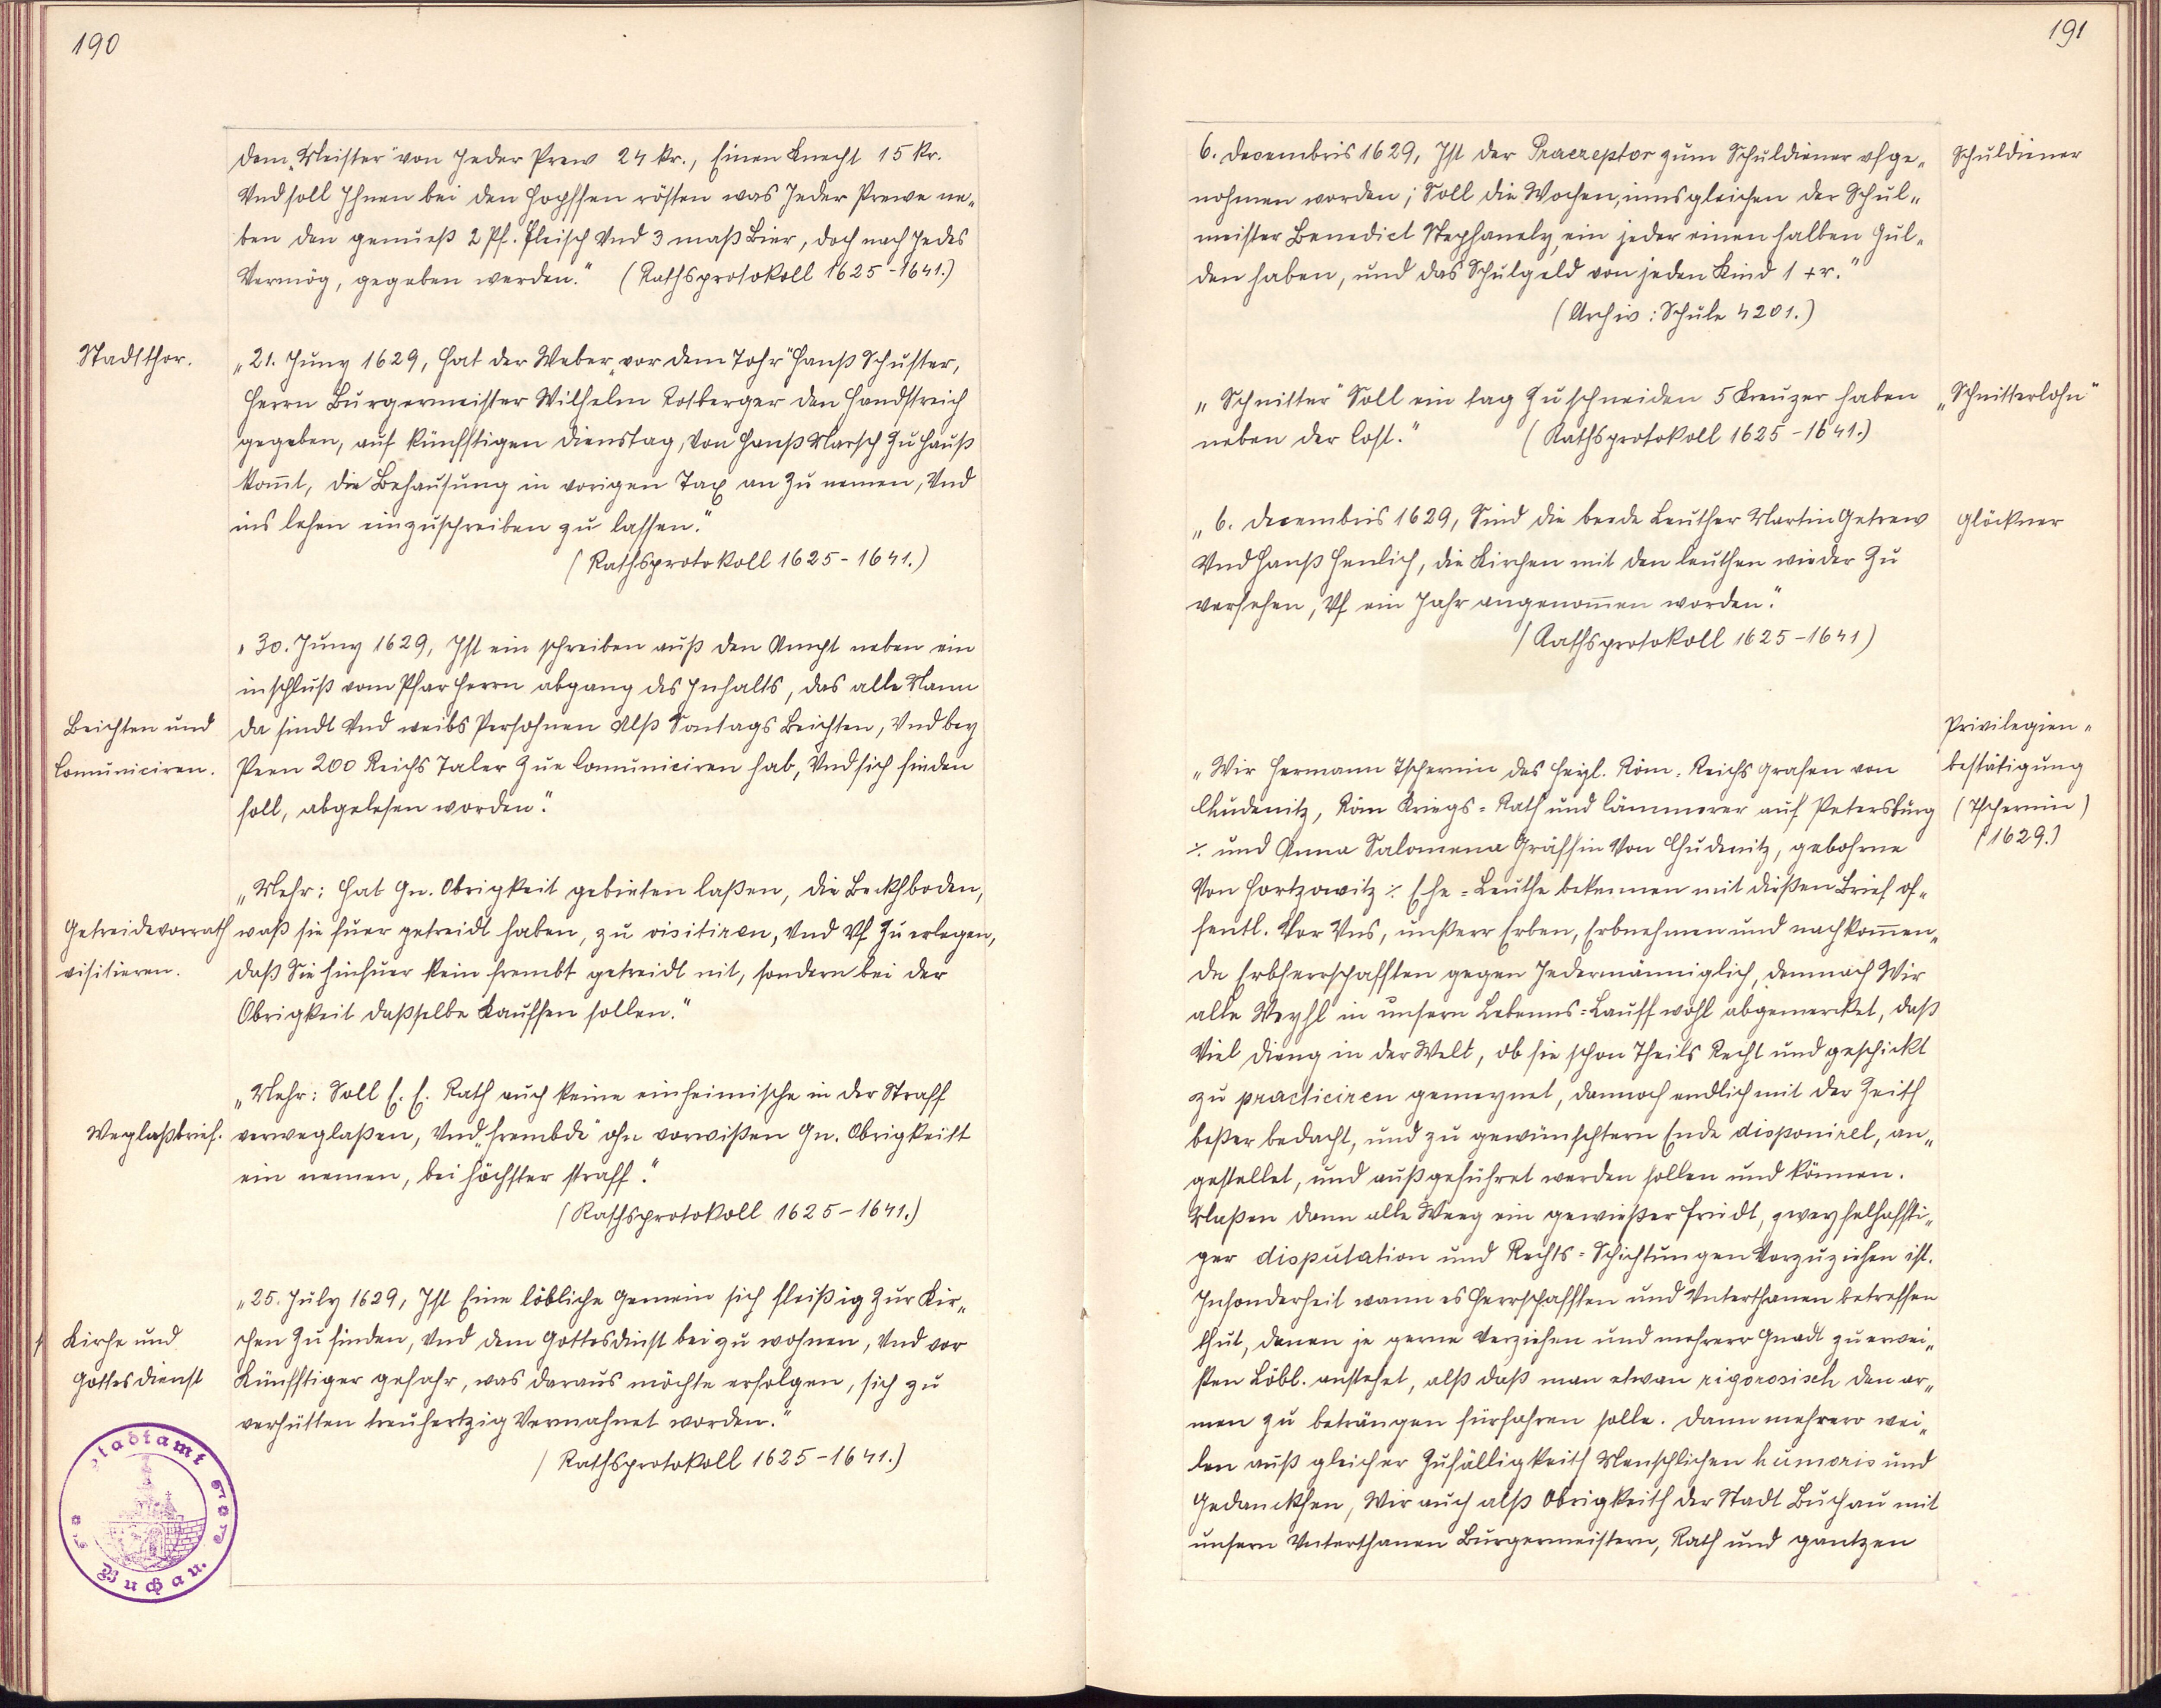 190
dem „Meister“ von Jeder Prew 24 kr., Einen Knecht 15 kr.
Vnd soll Ihnen bei den Hopffen rösten was Jeder Prewe ne„
ben den genueß 2 Pf. Fleisch Vnd 3 maß Bier, doch nach Jedes
Vermög, gegeben werden.“ (Rathsprotokoll 1625-1641.)
Stadtthor.
„21. Juny 1629, Hat der Weber „vor dem Tohr“ Hanß Schuster,
Herrn Burgermeister Wilhelm Rosberger den Handstreich
gegeben, auf künfftigen Dienstag, Von Hanß Marsch Zu Hauß
kom̄t, die Behausung in vorigen Tax an Zu nemen, Vnd
ins lehen einzuschreiben zu lassen.“
(Rathsprotokoll 1625-1641.)
„30. Juny 1629, Ist ein schreiben auß den Ampt neben ein
inschluß vom Pfarherrn abgang des Inhalts, das alle Mann
Beichten und
Com̄uniciren.
da sindt Vnd weibs Persohnen Alß Sontags Beichten, Vnd bey
Peen 200 Reichs Taler Zue Com̄uniciren hab, Vnd sich finden
soll, abgelesen worden.“
„Mehr: Hat Gn. Obrigkeit gebieten laßen, die Beckhboden,
Getreidevorrath
visitieren.
waß sie fuer getreidt haben, zu visitiren, Vnd Vf Zu erlegen,
daß Sie hinfuer kein frembt getreidt nit, sondern bei der
Obrigkeit daßselbe Kauffen sollen.“
„Mehr: Soll E. E. Rath auch keine einheimische in der Straff
Weglaßbrief.
verweglaßen, Vnd „frembde“ ohn vorwißen Gn. Obrigkeitt
ein nemen, bei höchster straff.“
(Rathsprotokoll 1625-1641.)
„25. July 1629, Ist Eine löbliche Gemein sich fleißig Zur Kir„
Kirche und
Gottesdienst
chen Zu finden, Vnd dem Gottesdinst bei zu wohnen, Vnd vor
Künfftiger gefahr, was daraus möchte erfolgen, sich zu
verhütten treuhertzig Vermahnet worden.“
(Rathsprotokoll 1625-1641.)
Stadtamt
Buchau.
191
6. Decembris 1629, Ist der Praezeptor zum Schuldiener ufge„
Schuldiener
nohmen worden; Soll die Wochen, imsgleichen der Schul„
meister Benedict Stephanely, ein jeder einen halben Gul„
den haben, und das Schulgeld von jeden Kind 1 +r.“
(Archiv: Schule 4201.)
„Schnitter“ Soll ein tag Zu schneiden 5 Kreuzer haben
„Schnitterlohn“
neben der Cost.“ (Rathsprotokoll 1625-1641.)
„6. Decembris 1629, Sind die beede Leuther Martin Getrew
Glöckner
Vnd Hanß Henlich, die Kirchen mit den leuthen wieder Zu
versehen, Vf ein Jahr angenom̄en worden.“
(Rathsprotokoll 1625-1641)
Privilegien„
bestätigung
(Tschernin)
(1629.)
„Wir Hermann Tschernin des Heyl. Röm. Reichs Grafen von
Chudenitz, Röm Kriegs=Rath und Cämmerer auf Petersburg
⁒ und Anna Salomena Gräffin Von Chudenitz, gebohrne
Von Hortzowitz ⁒ Ehe=Leuthe bekennen mit dießen Brief of„
fentl. Vor Vns, unßerr Erben, Erbnehmen und nachkom̄en„
de Erbherrschafften gegen Jedermänniglich, demnach Wir
alle Weyhl in unsern Lebenns=Lauff wohl abgemercket, daß
Viel Dieng in der Welt, ob sie schon Theils Recht und geschickt
zu practiciren gemeynet, dannoch endlich mit der Zeith
beßer bedacht, und zu gewünschtern Ende disponirel, an„
gestellet, und außgeführet werden sollen und können.
Maßen dann alle Weeg ein gewießer friedt, zweyfelhaffti„
ger disputation und Rechts=Schichtungen Vorzuziehen ist.
Insonderheit wann es Herrschafften und Vnterthanen betreffen
thut, denen je gerne Verziehen und mehrerr Gnadt zu erwei„
sten Löbl. anstehet, alß daß man etwan rigorosisch den ar„
men zu beträngen fürfahren solle. Dann mehrerr wei„
len auß gleicher Zufälligkeith Menschlichen humoris und
Gedanckhen, Wir auch alß Obrigkeith der Stadt Buchau mit
unsern Vnterthanen Burgermeistern, Rath und gantzen